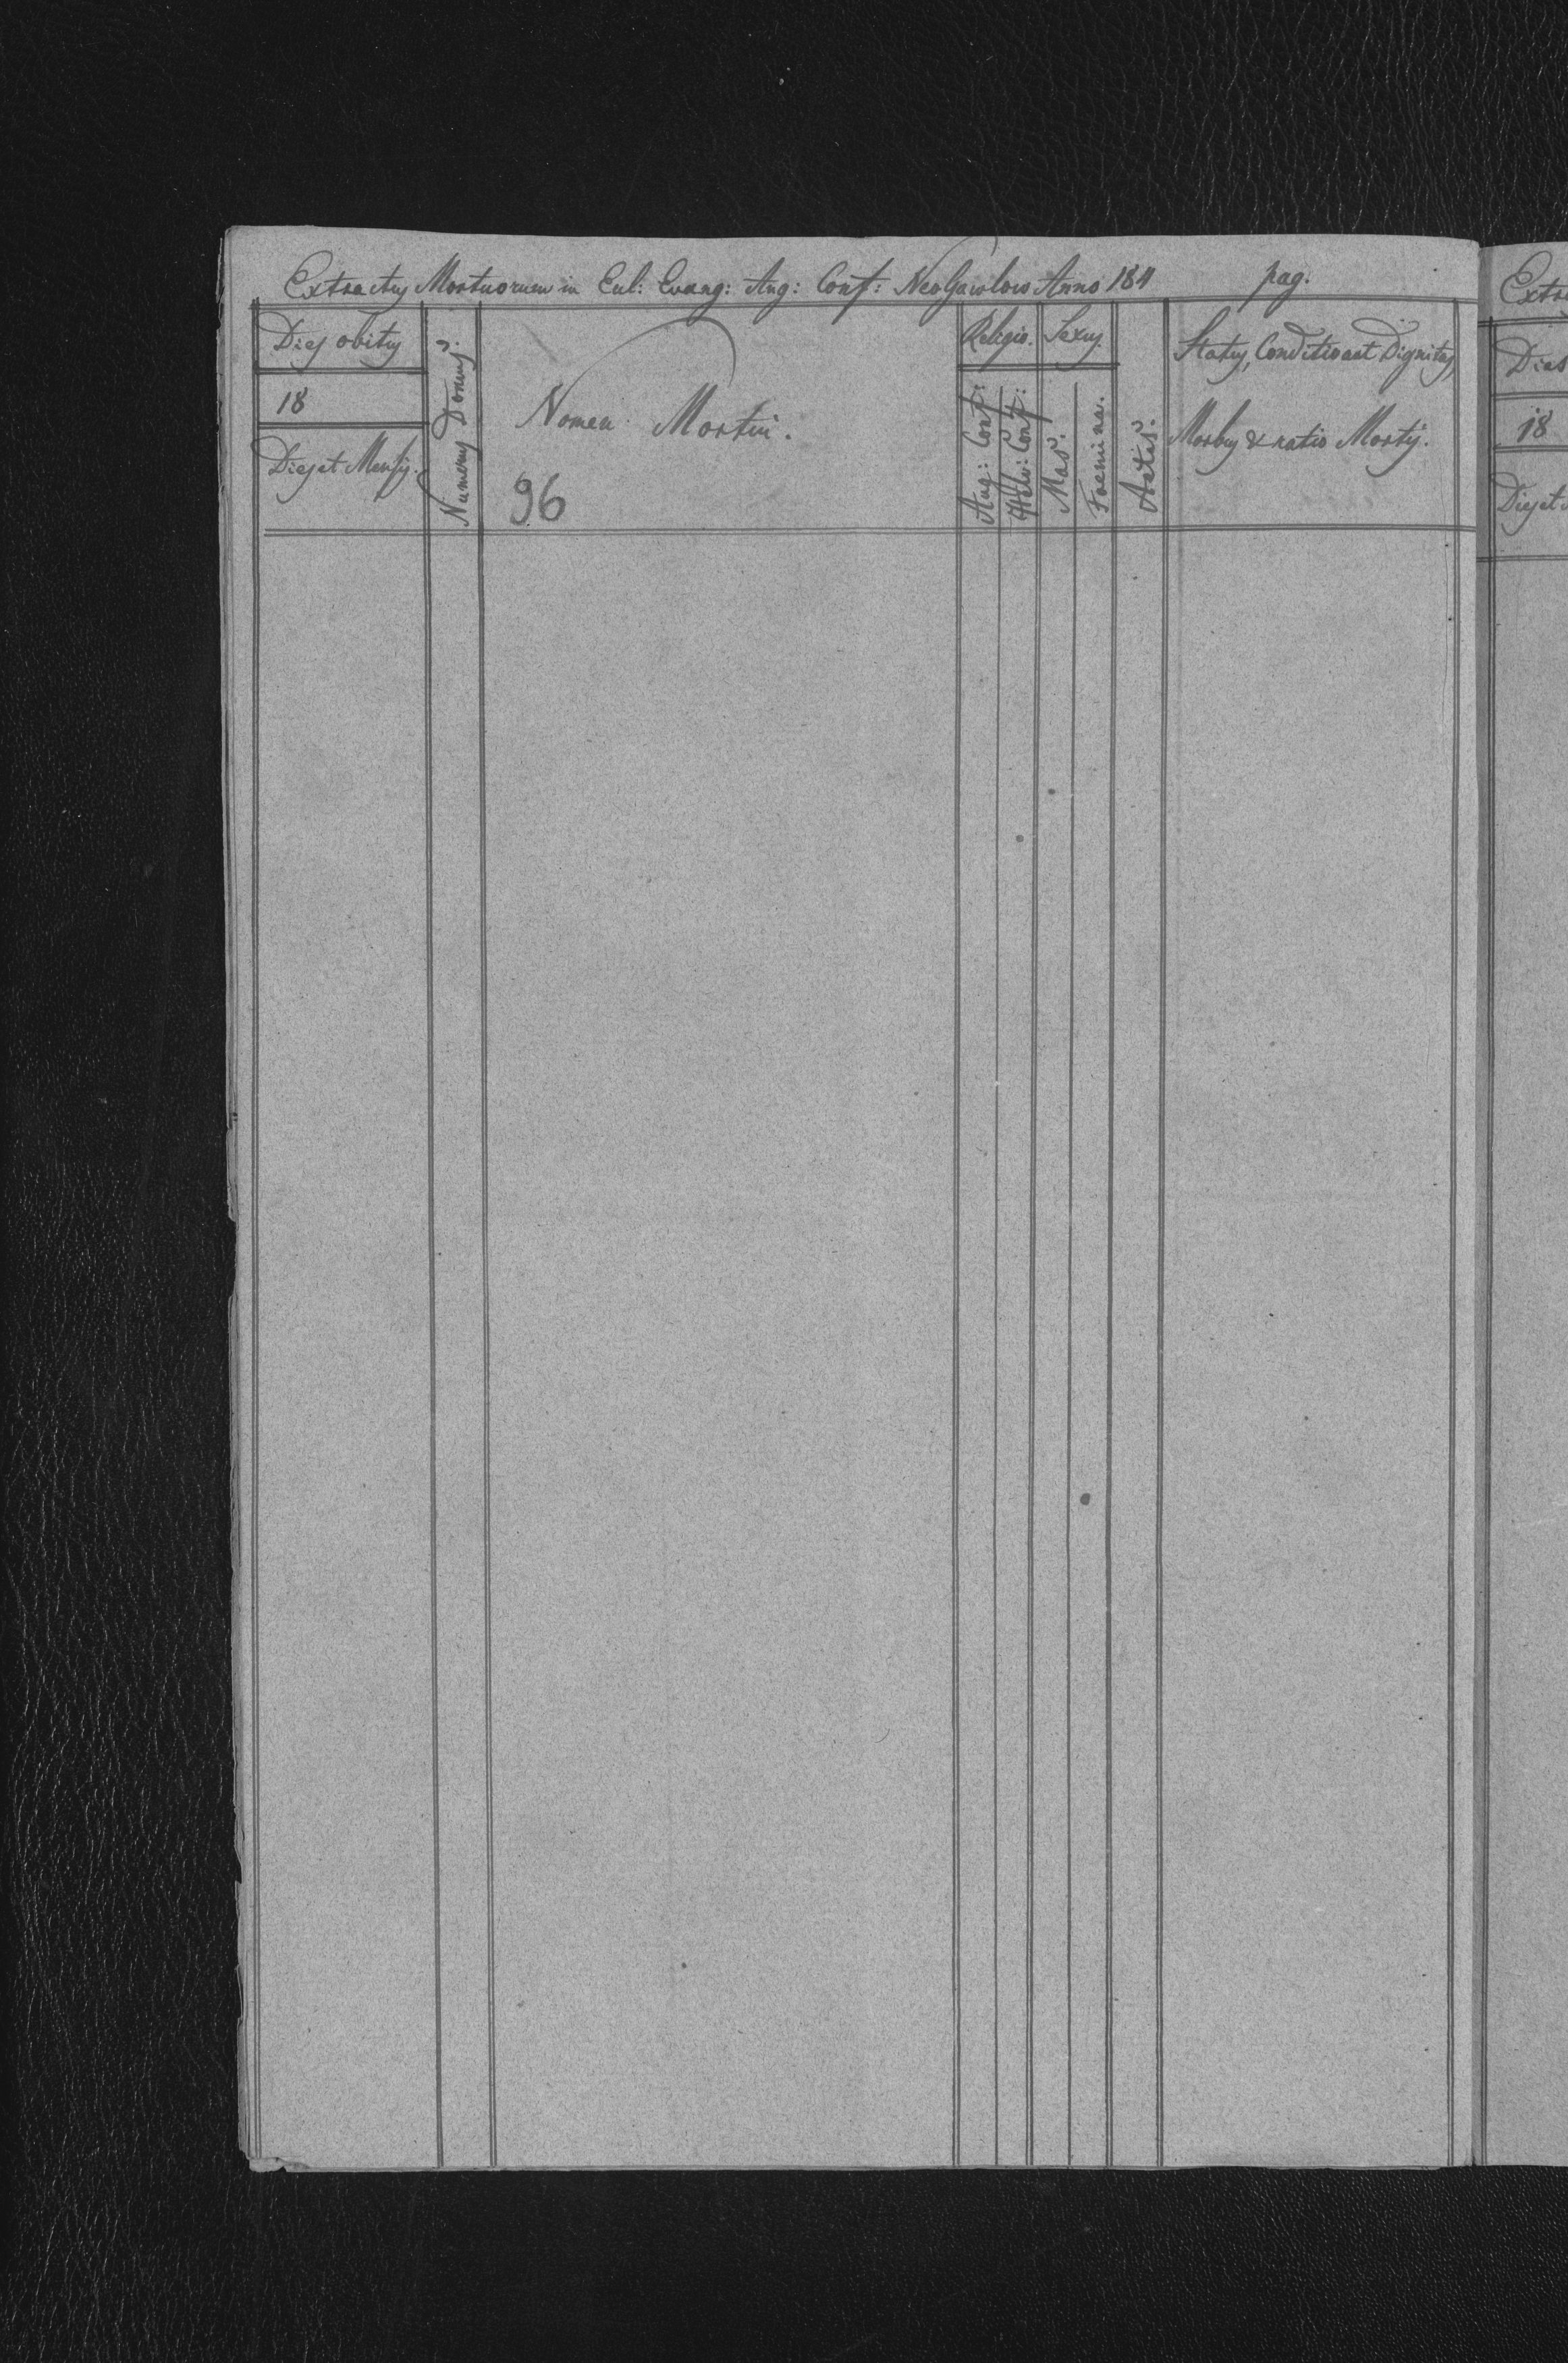 Extractus Mortuorum in Eccl: Evang: Aug: Conf: NeoGawlow Anno 184 pag.
Dies obitus
18
Dies et Mensis.
Numerus Domus.
Nomen Mortui.
96
Religio.
Aug: Conf:
Helv: Conf:
Sexus
Mas.
Foemina.
Aetas.
Status, Conditio aut Dignitas,
Morbus & ratio Mortis.
Extra
Dies
18
Dies et